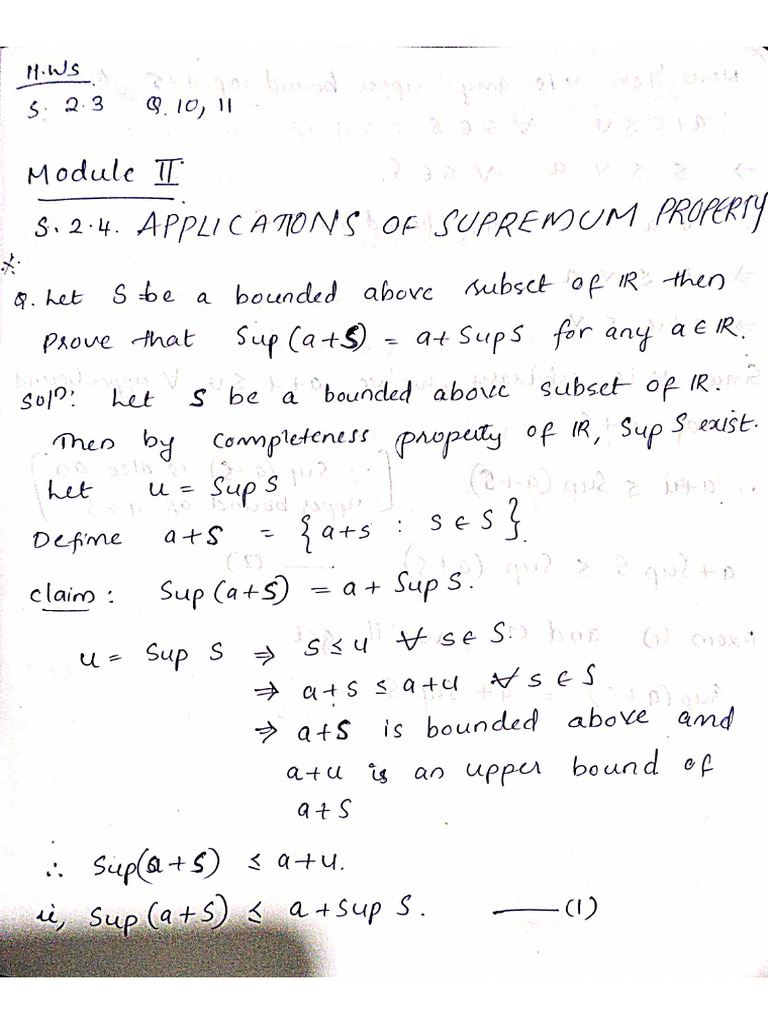 H.WS
S. 2.3 Q. 10, 11
Module II
S. 2.4. APPLICATIONS OF SUPREMUM PROPERTY
*
Q. Let S be a bounded above subset of IR then
Prove that Sup (a+S) = a+ Sup S for any a ∈ IR.
Solⁿ: Let S be a bounded above subset of IR.
Then by completeness property of IR, Sup S exist.
Let u = Sup S
Define a+S = {a+s : s ∈ S}.
claim: Sup (a+S) = a + Sup S.
u = Sup S ⇒ s ≤ u ∀ s ∈ S.
⇒ a+s ≤ a+u ∀ s ∈ S
⇒ a+S is bounded above and
a+u is an upper bound of
a+S
∴ Sup(a+S) ≤ a+u.
ie, Sup (a+S) ≤ a+Sup S. —— (1)